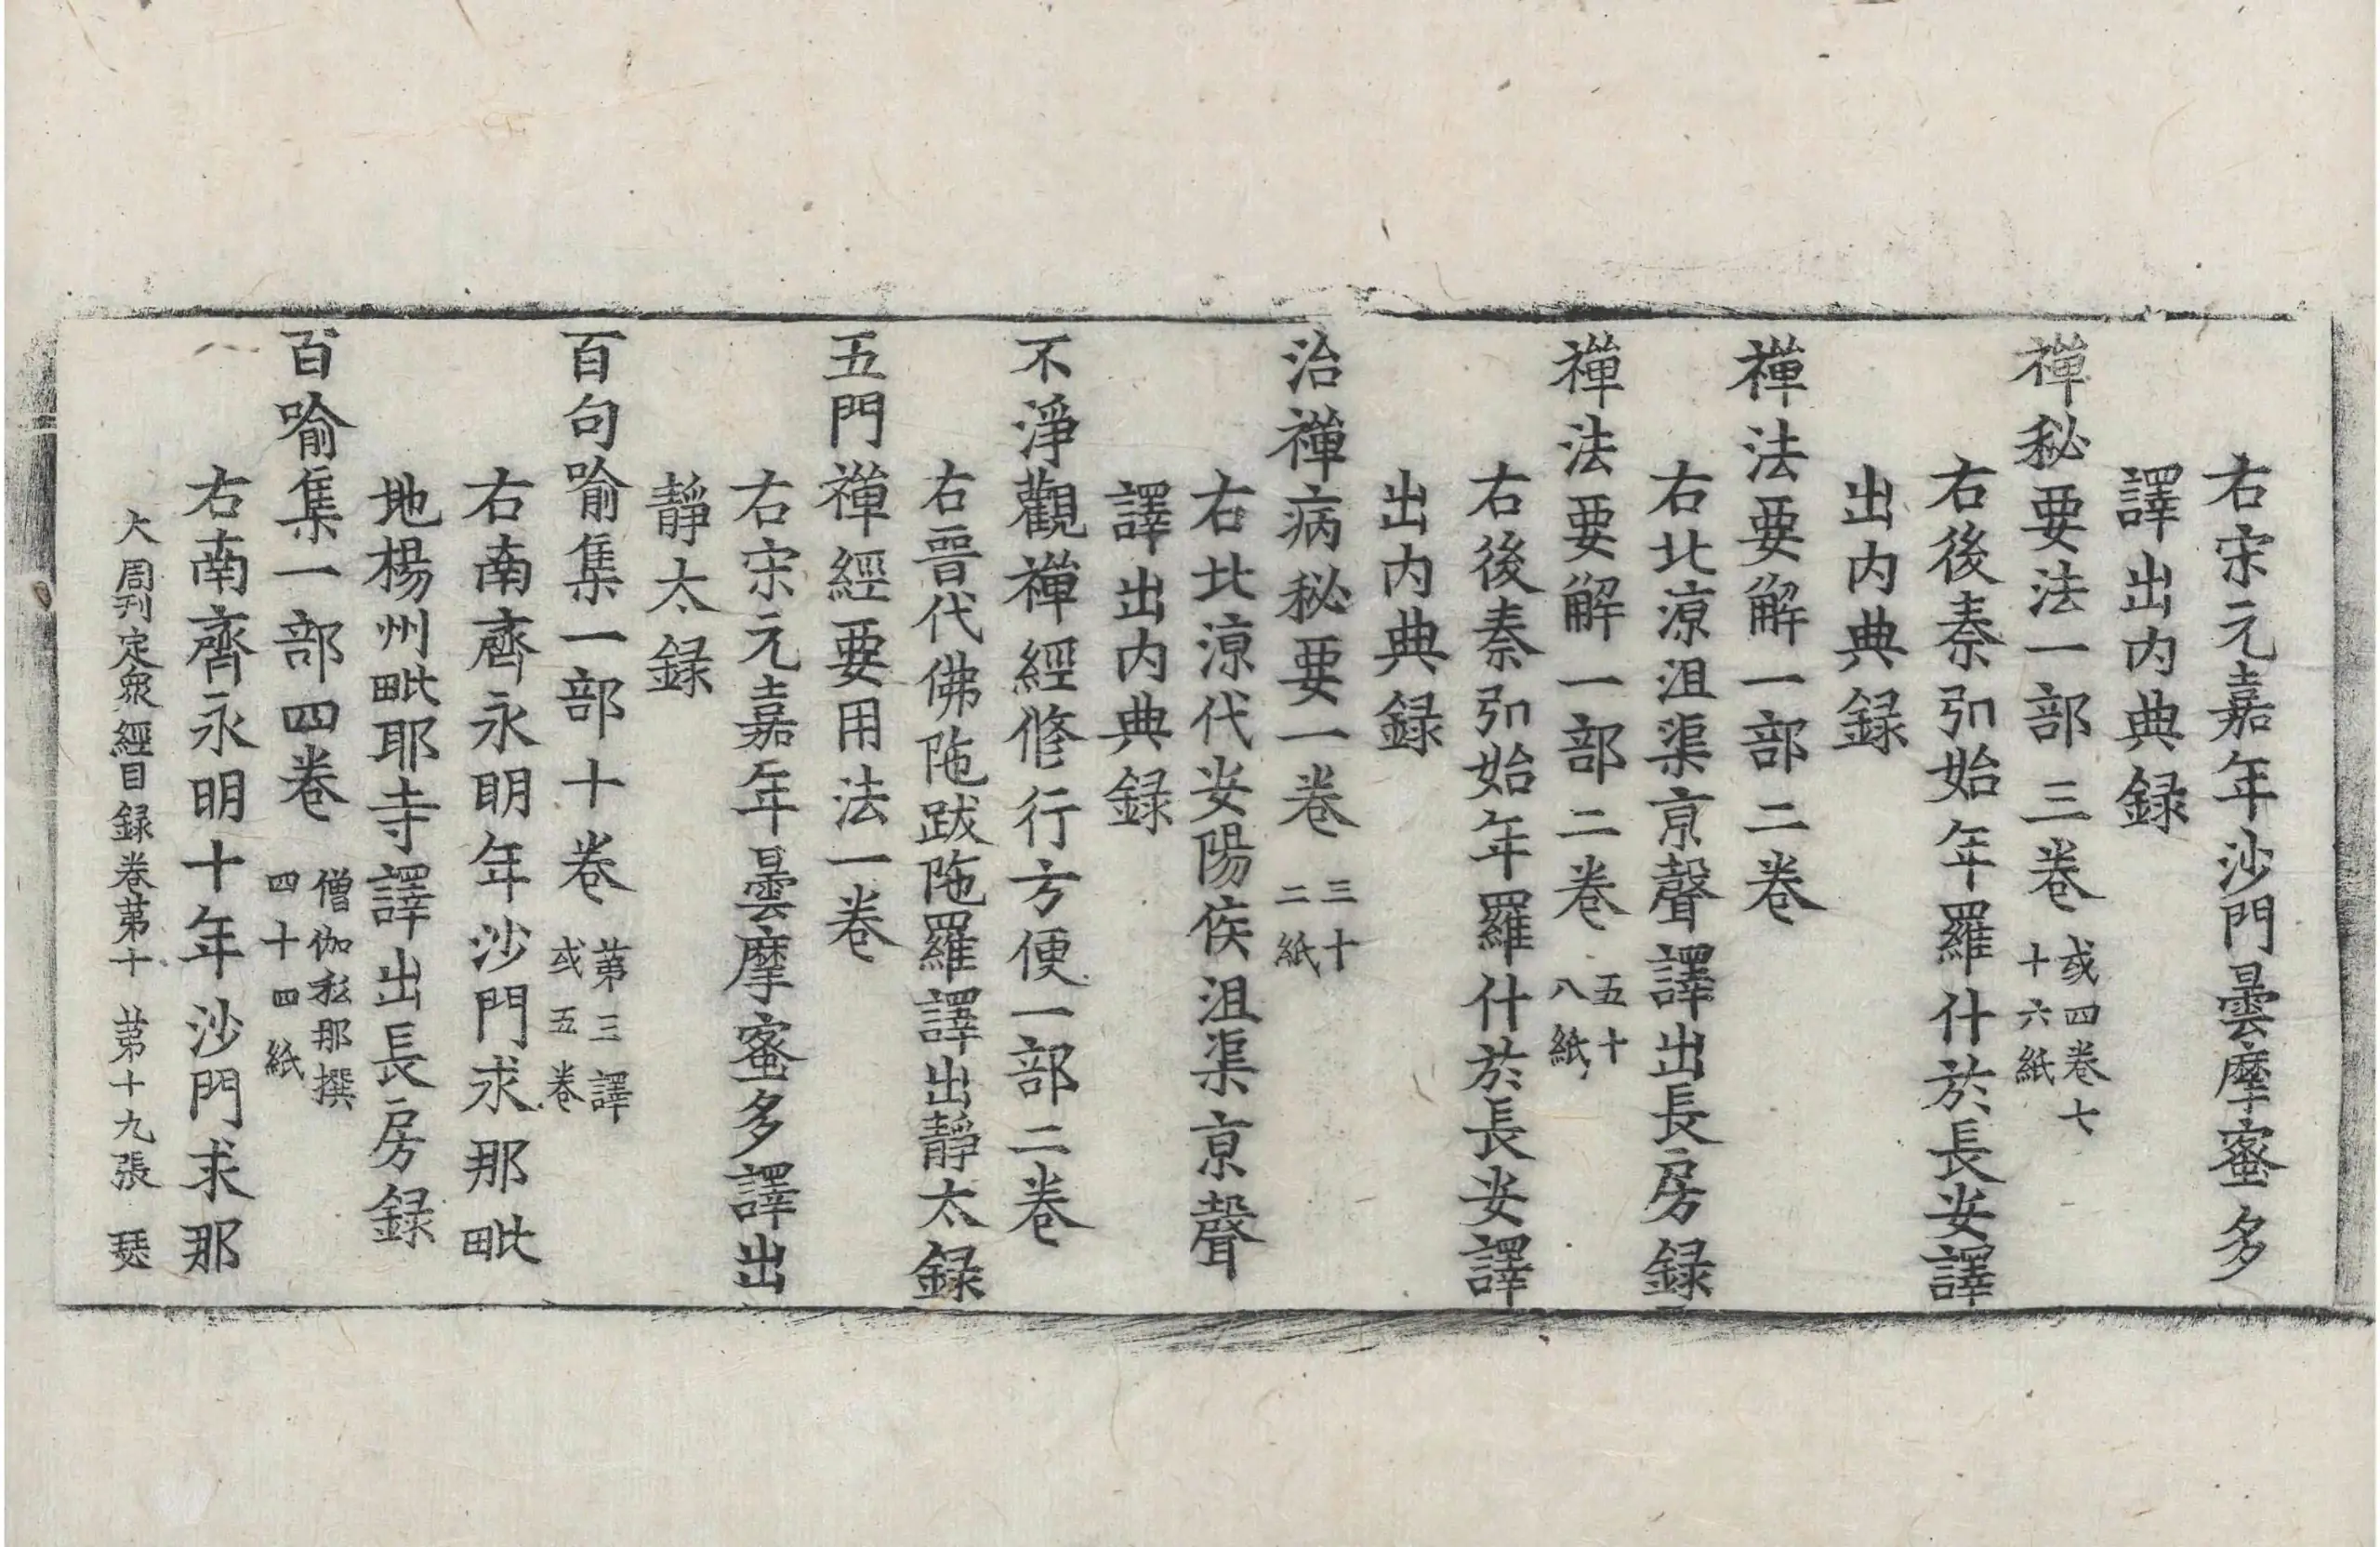 右宋元嘉年沙門曇摩蜜多
譯出内典録
禪秘要法一部三卷 或四卷七十六紙
右後秦弘始年羅什於長安譯
出内典録
禪法要解一部二卷
右北涼沮渠京聲譯出長房録
禪法要解一部二卷 五十八紙
右後秦弘始年羅什於長安譯
出内典録
治禪病秘要一卷 三十二紙
右北涼代安陽侯沮渠京聲
譯出内典録
不淨觀禪經修行方便一部二卷
右晉代佛陁跋陁羅譯出靜太録
五門禪經要用法一卷
右宋元嘉年曇摩蜜多譯出
靜太録
百句喻集一部十卷 第三譯或五卷
右南齊永明年沙門求那毗
地楊州毗耶寺譯出長房録
百喻集一部四卷 僧伽私那撰四十四紙
右南齊永明十年沙門求那
大周刊定衆經目録卷第十 第十九張 瑟